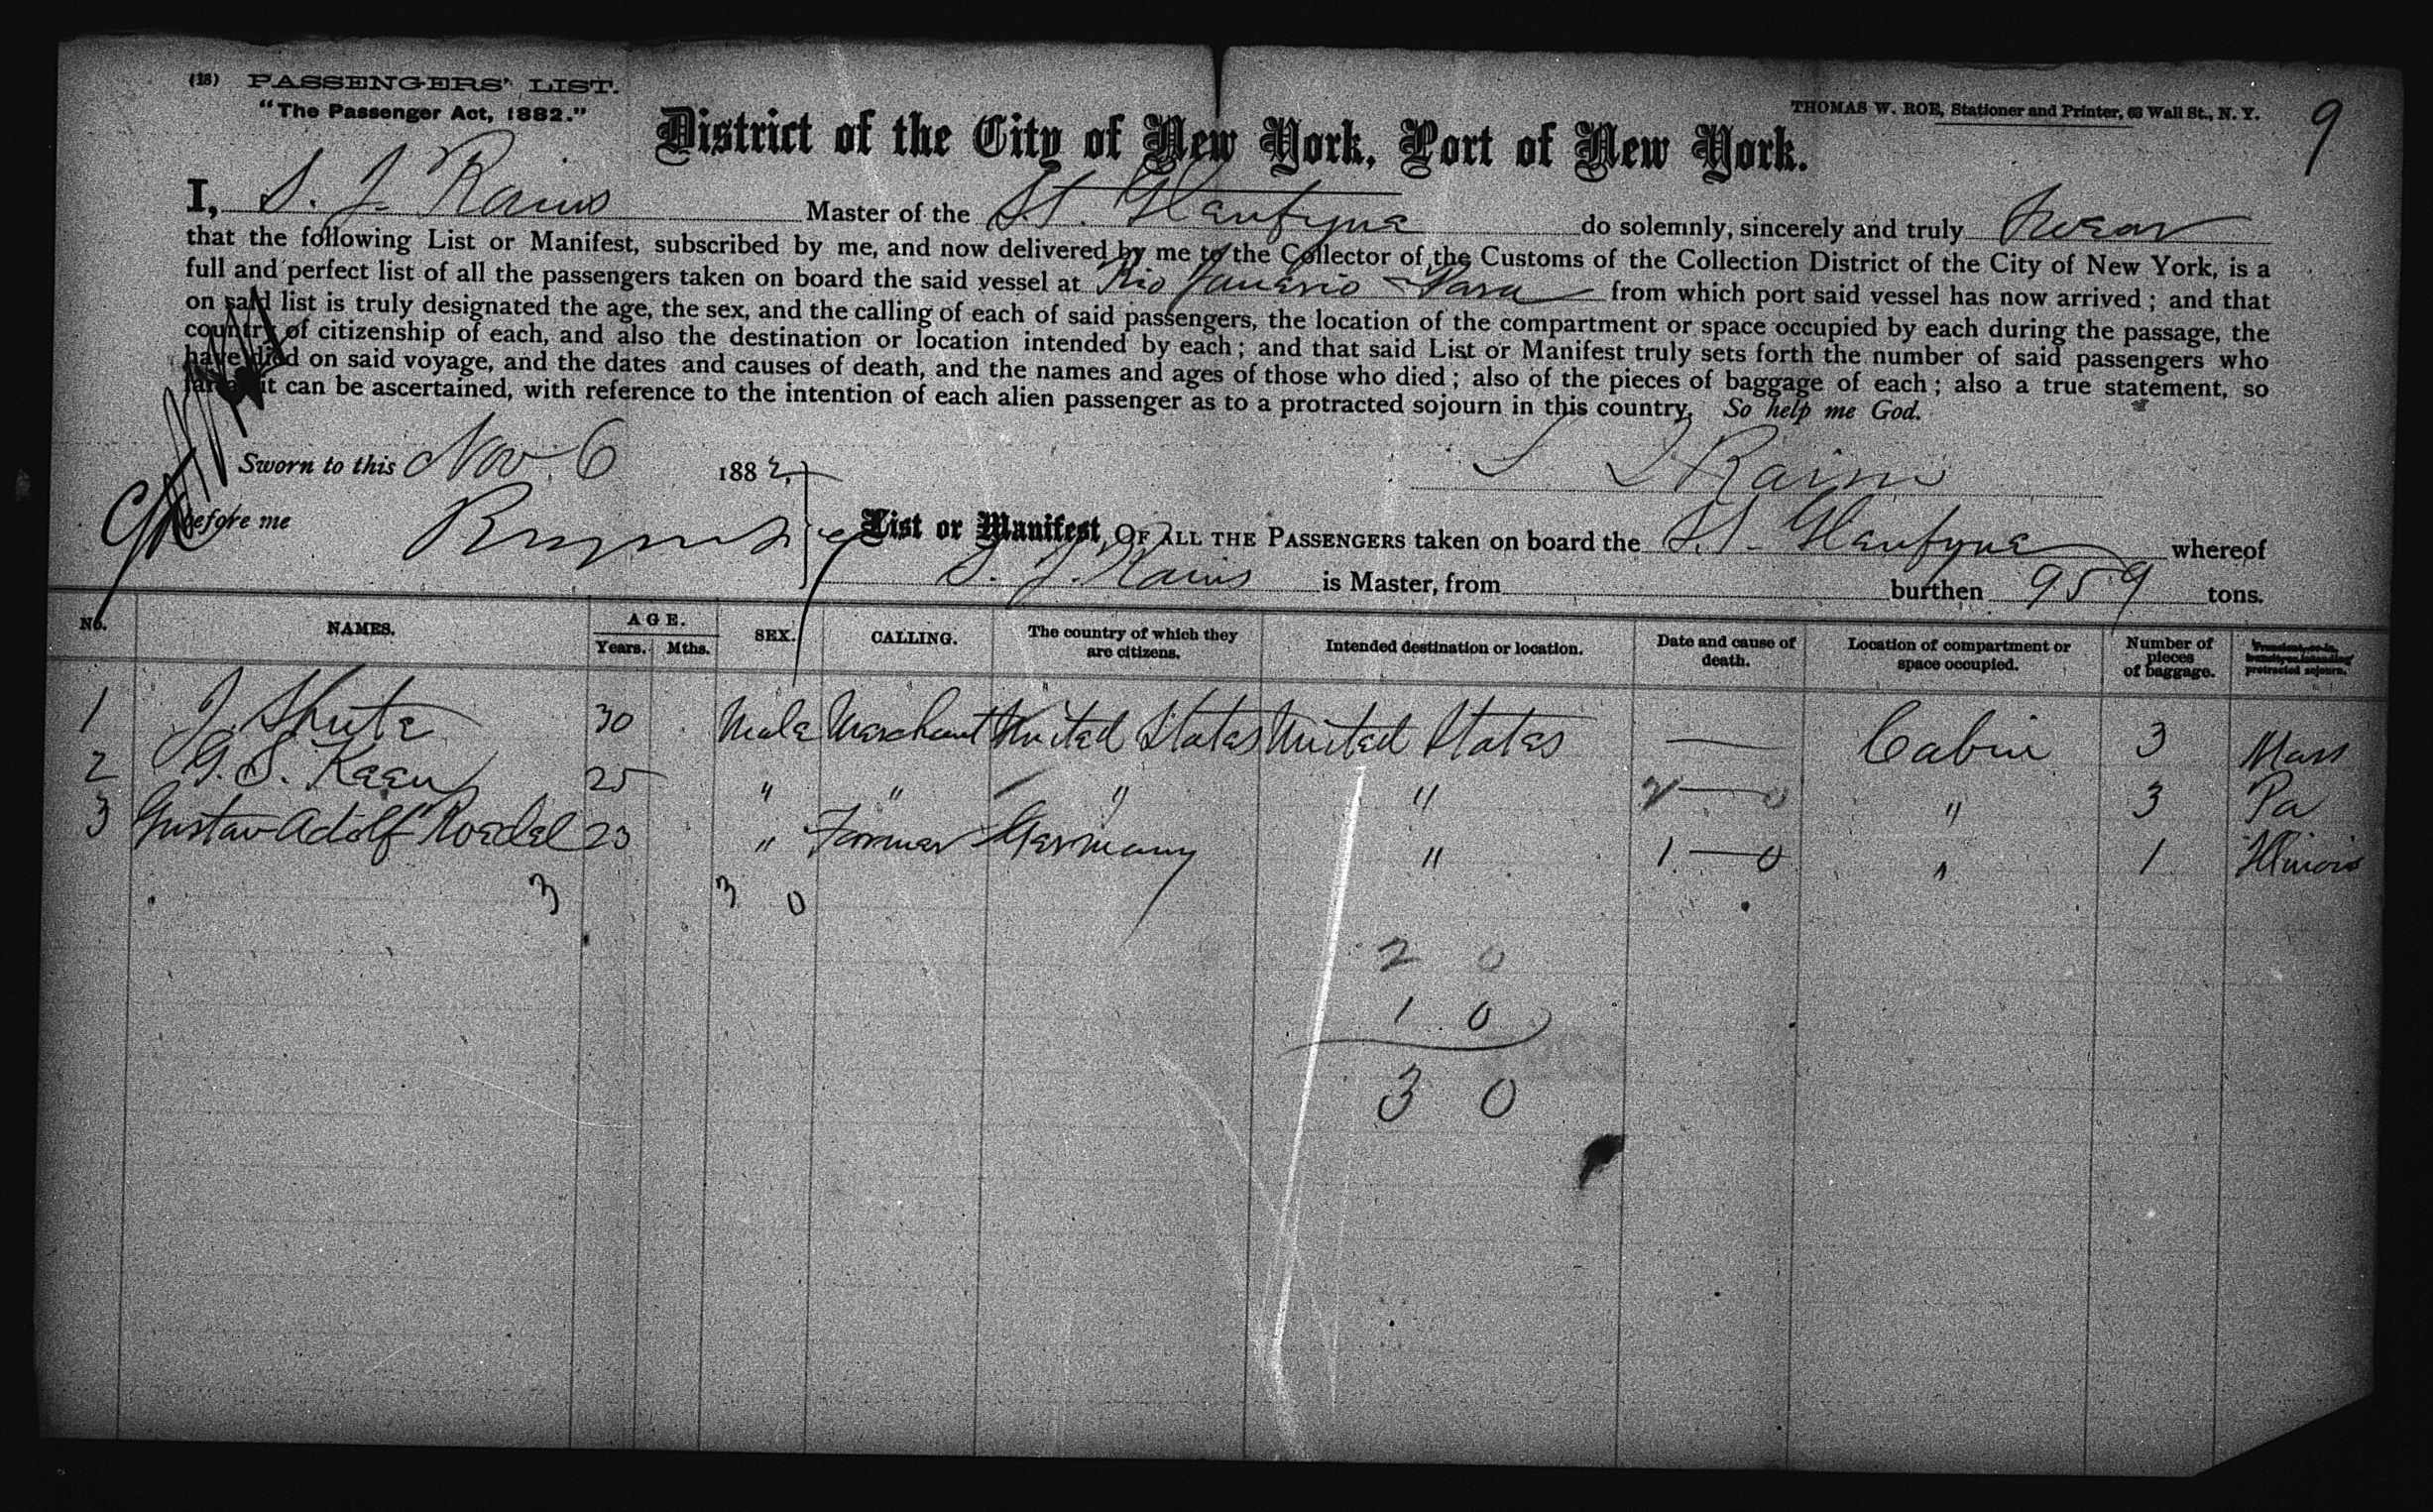 (18) PASSENGERS' LIST.
"The Passenger Act, 1882."
THOMAS W. ROE, Stationer and Printer, 63 Wall St., N. Y.
9
District of the City of New York, Port of New York.
I, S. J. Rains Master of the SS. Glenfyne do solemnly, sincerely and truly Swear
that the following List or Manifest, subscribed by me, and now delivered by me to the Collector of the Customs of the Collection District of the City of New York, is a
full and perfect list of all the passengers taken on board the said vessel at Rio Janeiro Para from which port said vessel has now arrived; and that
on said list is truly designated the age, the sex, and the calling of each of said passengers, the location of the compartment or space occupied by each during the passage, the
country of citizenship of each, and also the destination or location intended by each; and that said List or Manifest truly sets forth the number of said passengers who
have died on said voyage, and the dates and causes of death, and the names and ages of those who died; also of the pieces of baggage of each; also a true statement, so
far as it can be ascertained, with reference to the intention of each alien passenger as to a protracted sojourn in this country. So help me God.
Sworn to this Nov. 6 1882,
S J Rains
before me
List or Manifest, OF ALL THE PASSENGERS taken on board the SS. Glenfyne whereof
S. J. Rains is Master, from burthen 959 tons.
No. NAMES. AGE. Years. Mths. SEX. CALLING. The country of which they are citizens. Intended destination or location. Date and cause of death. Location of compartment or space occupied. Number of pieces of baggage. protracted sojourn.
1 J. Shute 30 Male Merchant United States United States — Cabin 3 Mass
2 G. S. Keen 25 " " " " 2 — 0 " 3 Pa
3 Gustav Adolf Roedel 23 " Farmer Germany " 1 — 0 " 1 Illinois
3 3 0
2 0
1 0
3 0